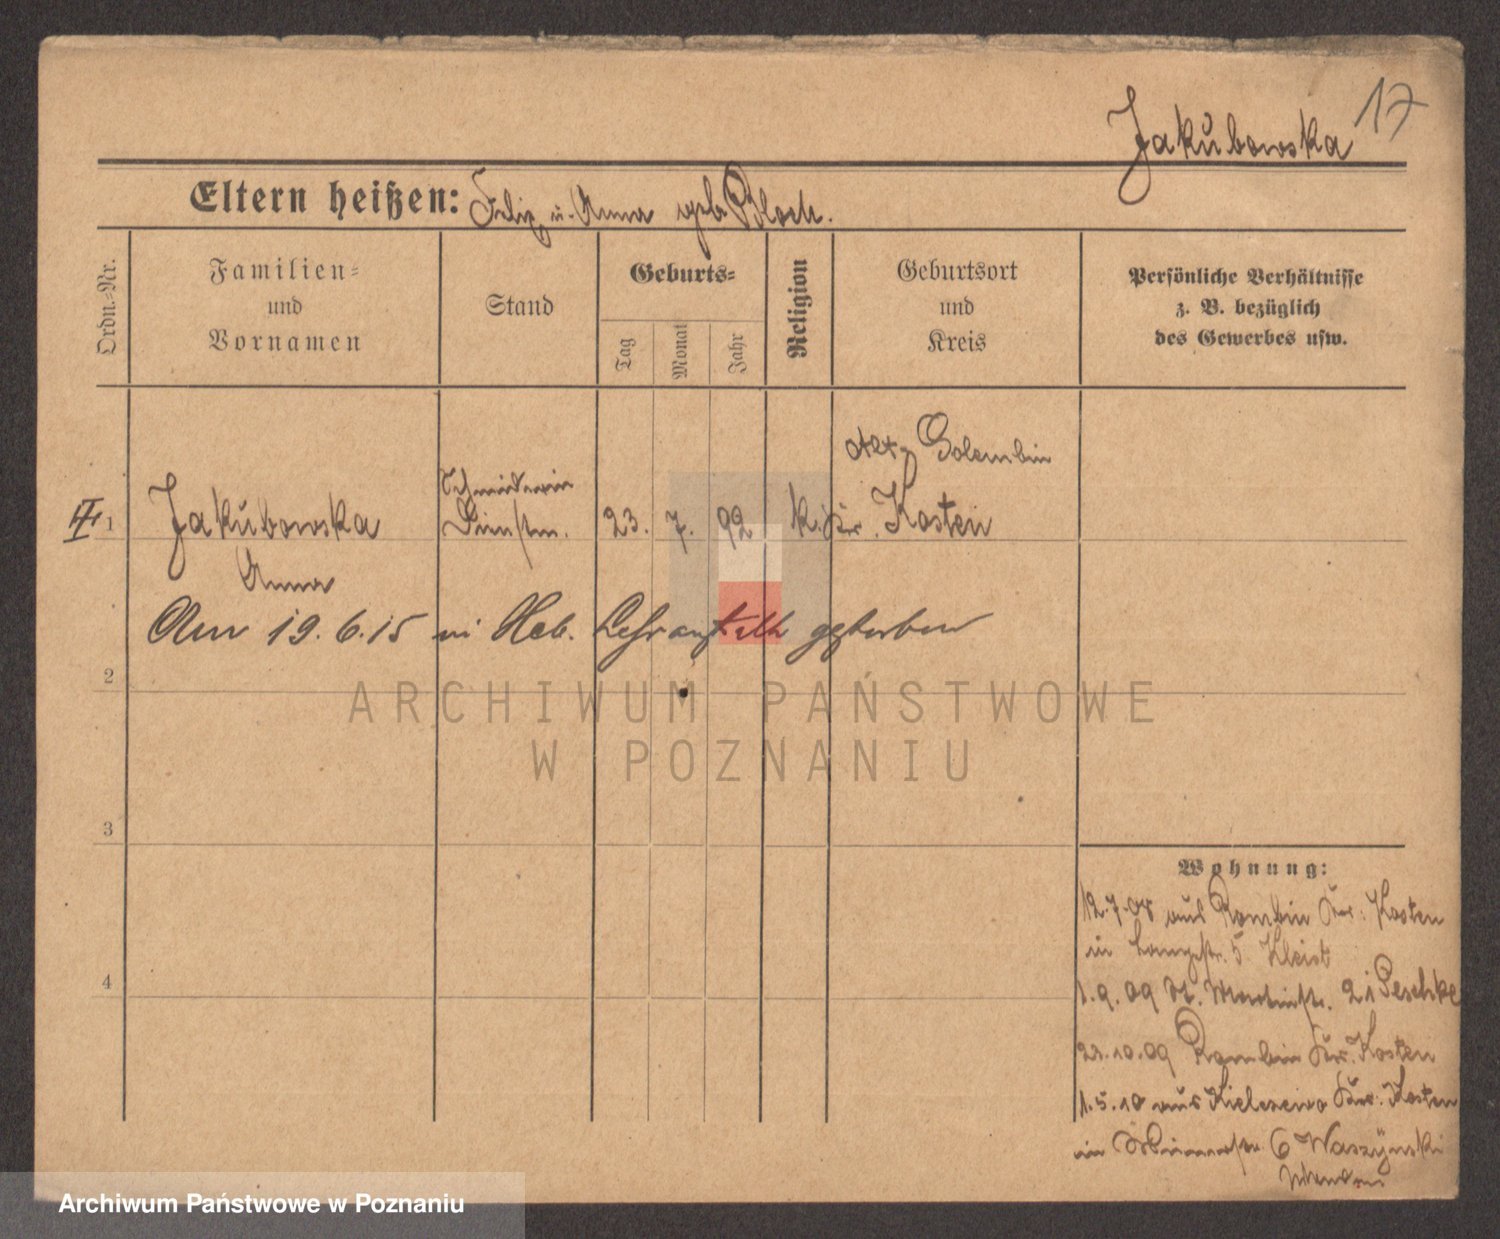 17
Jakubowska
Eltern heißen: Felix u. Anna geb. Bloch.
Ordn.-Nr.
Familien-
und
Vornamen
Stand
Geburts-
Tag
Monat
Jahr
Religion
Geburtsort
und
Kreis
Persönliche Verhältnisse
z. B. bezüglich
des Gewerbes usw.
Golembin
Schneiderin
II 1 Jakubowska Dienstm. 23. 7. 92 k. Kr. Kosten
Anna
Am 19.6.15 in Heb. Lehranstalt gestorben
2
ARCHIWUM PAŃSTWOWE
W POZNANIU
3
4
Wohnung:
12.7.08 aus Rombin Kr. Kosten
in Langestr. 5 Kleist
1.9.09 St. Martinstr. 21 Peschke
23.10.09 Rombin Kr. Kosten
1.5.10 aus Kielczewo Kr. Kosten
in 6 Waszynski
Archiwum Państwowe w Poznaniu